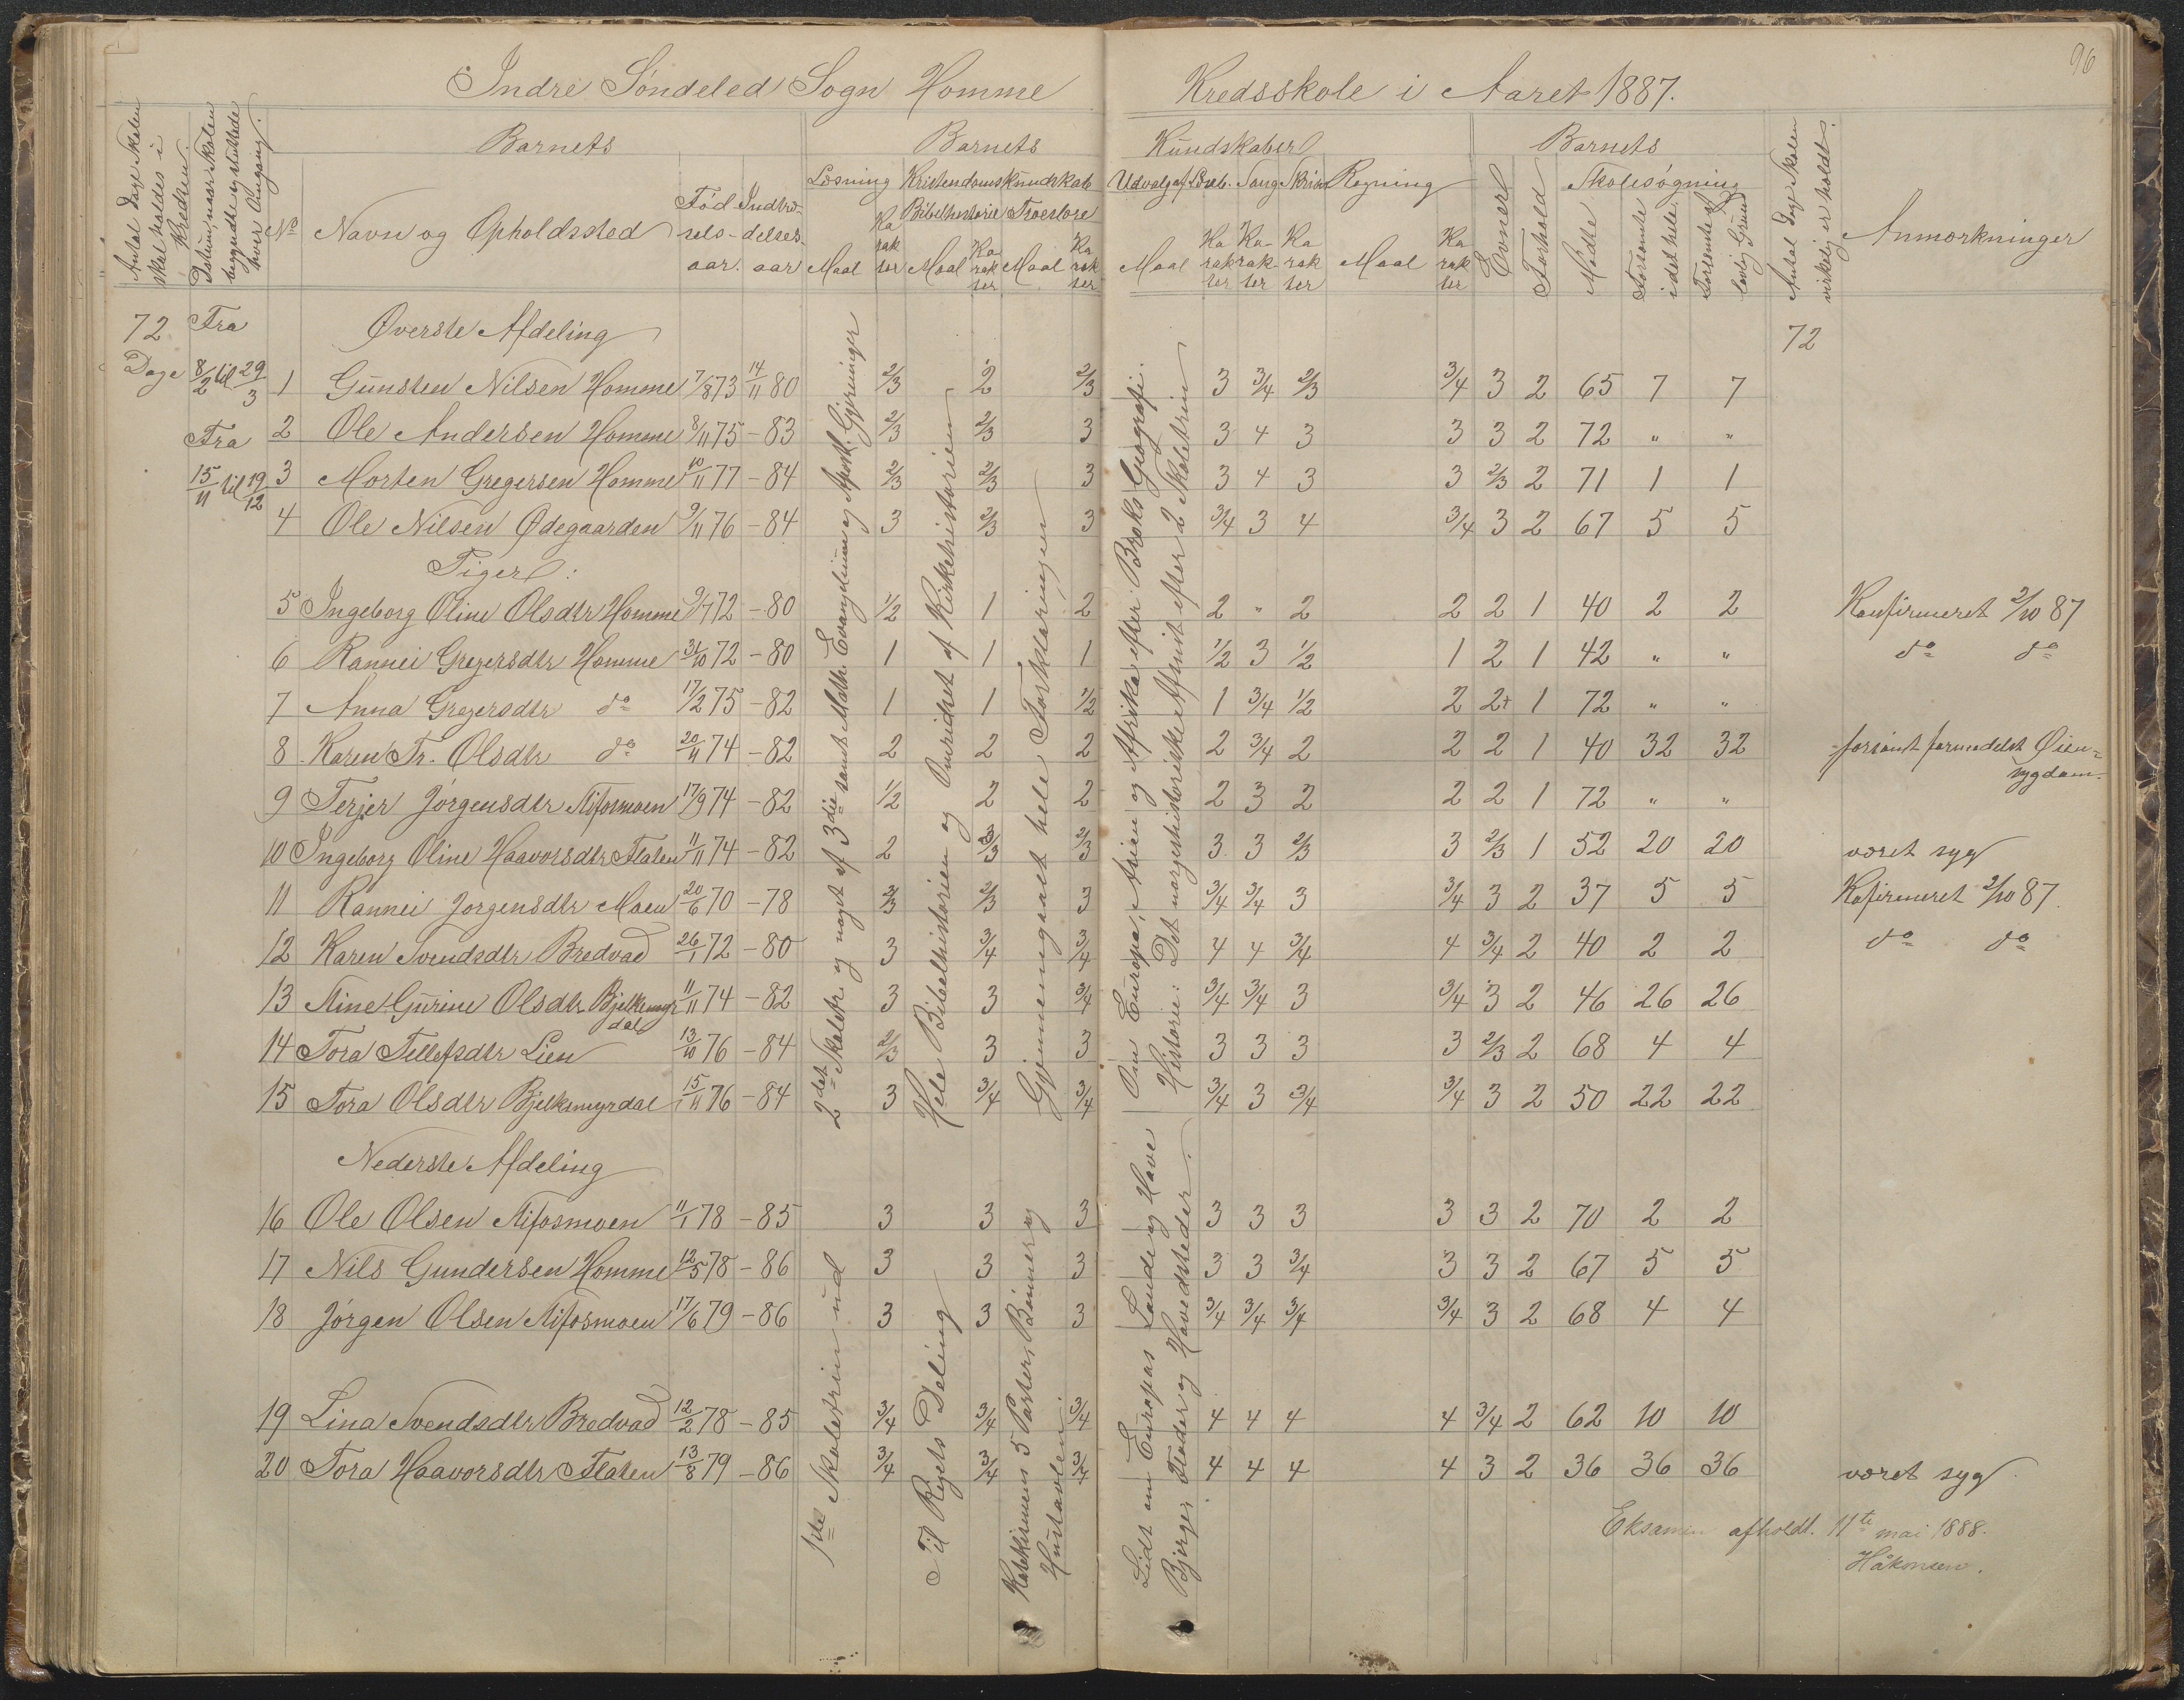 96
Indre Söndeled Sogn Homme Kredsskole i Aaret 1887.
Antal Dage Skolen skal holdes i Kredsen.
Datum, naar Skolen begyndte og sluttede hver Omgang.
Barnets
Barnets Kundskaber
Barnets
No
Navn og Opholdssted
Fødselsaar.
Indtrædelsesaar
Læsning
Kristendomskundskab
Bibelhistorie
Troeslære
Udvalg af Læseb.
Sang
Skrivn
Regning
Maal
Karakter
Evner
Forhold
Skolesøgning
Mødte
Forsømte i det hele
Forsømte af lovlig Grund
Antal Dage Skolen virkelig er holdt.
Anmærkninger
72 Dage
Fra 8/2 til 29/3
Fra 15/11 til 19/12
Øverste Afdeling
72
1 Gunsten Nilsen Homme 7/8 73 14/11 80 2/3 2 2/3 3 3/4 2/3 3/4 3 2 65 7 7
2 Ole Andersen Homme 8/11 75 - 83 2/3 2/3 3 3 4 3 3 3 2 72 " "
3 Morten Gregersen Homme 10/11 77 - 84 2/3 2/3 3 3 4 3 3 2/3 2 71 1 1
4 Ole Nilsen Ødegaarden 9/11 76 - 84 3 2/3 3 3/4 3 4 3/4 3 2 67 5 5
Piger:
5 Ingeborg Oline Olsdtr Homme 9/7 72 - 80 1/2 1 2 2 " 2 2 2 1 40 2 2 Konfirmeret 2/10 87
6 Rannei Gregersdtr Homme 31/10 72 - 80 1 1 1 1/2 3 1/2 1 2 1 42 " " do do
7 Anna Gregersdtr do 17/2 75 - 82 1 1 1/2 1 3/4 1/2 2 2+ 1 72 " "
8 Karen Tr. Olsdtr do 20/11 74 - 82 2 2 2 2 3/4 2 2 2 1 40 32 32 forsömt formedelst Øiensygdom.
9 Terjer Jörgensdtr Aifosmoen 17/9 74 - 82 1/2 2 2 2 3 2 2 2 1 72 " "
10 Ingeborg Oline Haavorsdtr Flaten 11/11 74 - 82 2 2/3 2/3 3 3 2/3 3 2/3 1 52 20 20 været syg
11 Rannei Jorgensdtr Moen 20/6 70 - 78 2/3 2/3 3 3/4 3/4 3 3/4 3 2 37 5 5 Kofirmeret 2/10 87.
12 Karen Svendsdtr Bredvad 26/1 72 - 80 3 3/4 3/4 4 4 3/4 4 3/4 2 40 2 2 do do
13 Stine Gurine Olsdtr Bjelkemyrdal 11/11 74 - 82 3 3 3/4 3/4 3/4 3 3/4 3 2 46 26 26
14 Tora Tellefsdtr Lien 13/10 76 - 84 2/3 3 3 3 3 3 3 2/3 2 68 4 4
15 Tora Olsdtr Bjelkemyrdal 15/11 76 - 84 3 3/4 3/4 3/4 3 3/4 3/4 3 2 50 22 22
2det Skoletr. og noget af 3die samt Matth. Evangelium og Apost. Gjerninger
Hele Bibelhistorien og Omridset af Kirkehistorien
Gjennemgaaet hele Forklaringen
Om Europa, Asien og Afrika efter Broks Geografi.
Historie: Det norgeshistoriske Afsnit efter 2 Skoletrin
Nederste Afdeling
16 Ole Olsen Aifosmoen 11/1 78 - 85 3 3 3 3 3 3 3 3 2 70 2 2
17 Nils Gundersen Homme 12/5 78 - 86 3 3 3 3 3 3/4 3 3 2 67 5 5
18 Jörgen Olsen Aifosmoen 17/6 79 - 86 3 3 3 3/4 3/4 3/4 3/4 3 2 68 4 4
19 Lina Svendsdtr Bredvad 12/2 78 - 85 3/4 3/4 3/4 4 4 4 4 3/4 2 62 10 10
20 Tora Haavorsdtr Flaten 13/8 79 - 86 3/4 3/4 3/4 4 4 4 4 3 2 36 36 36 været syg
1ste Skoletrin ud
Til Rigets Deling
Katekismens 5 Parter, Bönner og Hustavlen.
Lidt om Europas Lande og Have
Bjerger Floder og Hovedsteder.
Eksamen afholdt 11te mai 1888.
Håkonsen.